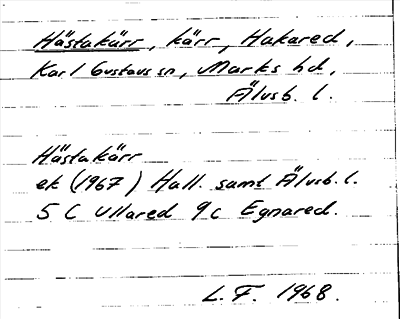 Hästakärr, kärr, Hakared,
Karl Gustavs sn, Marks hd,
Älvsb. l.
Hästakärr
ek (1967) Hall. samt Älvsb. l.
5 C Ullared 9c Egnared.
L.F. 1968.